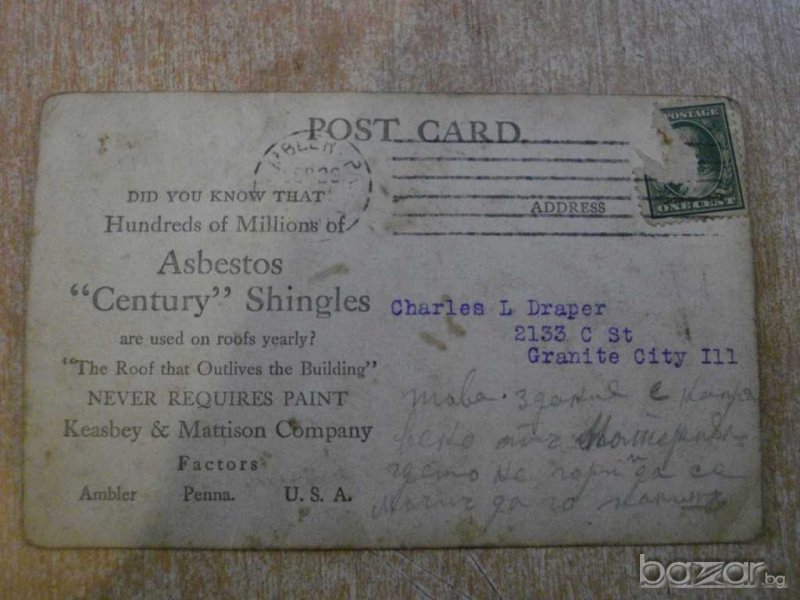 POST CARD
ADDRESS
DID YOU KNOW THAT
Hundreds of Millions of
Asbestos
"Century" Shingles
are used on roofs yearly?
"The Roof that Outlives the Building"
NEVER REQUIRES PAINT
Keasbey & Mattison Company
Factors
Ambler Penna. U. S. A.
Charles L Draper
2133 C St
Granite City Ill
това здание е
гдето не гори да се
да го
bazar.bg